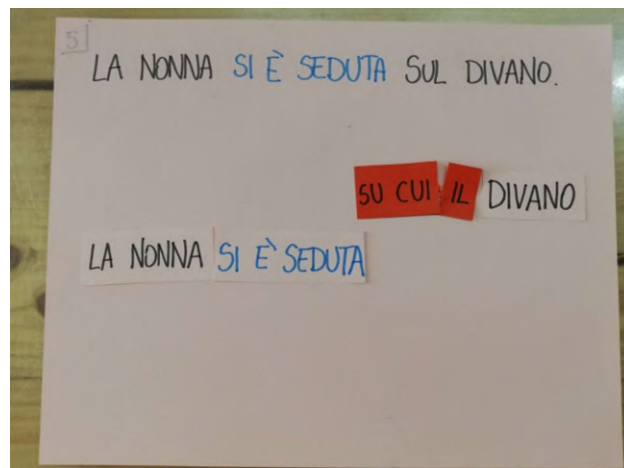 5
LA NONNA SI È SEDUTA SUL DIVANO.
SU CUI IL DIVANO
LA NONNA SI È SEDUTA